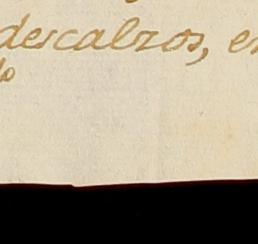 descalzos, en